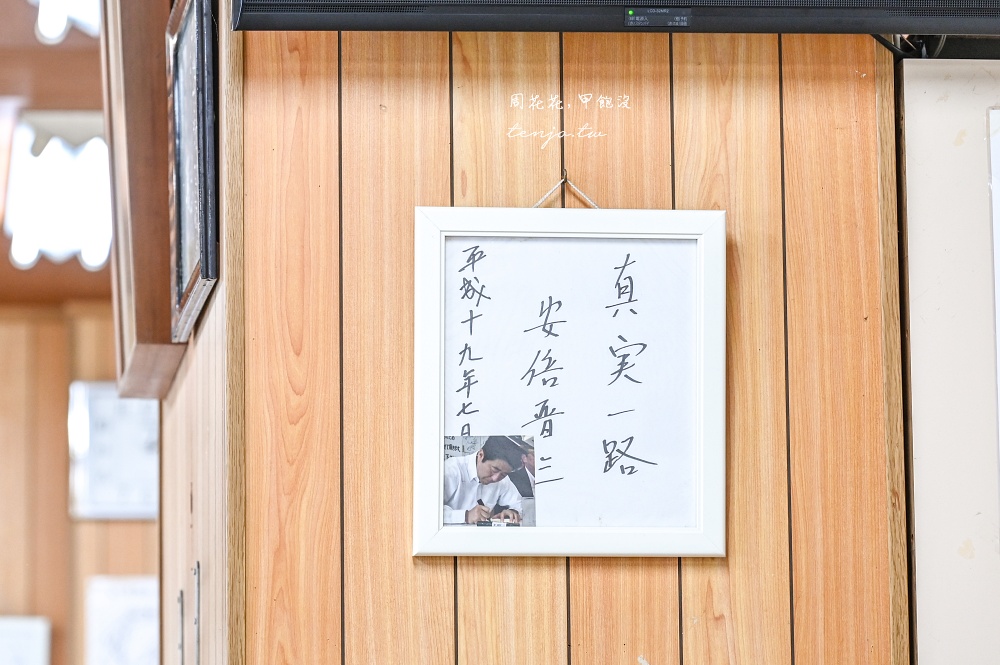 周花花,甲飽沒
tenjo.tw
真実一路
安倍晋三
平成十九年七月